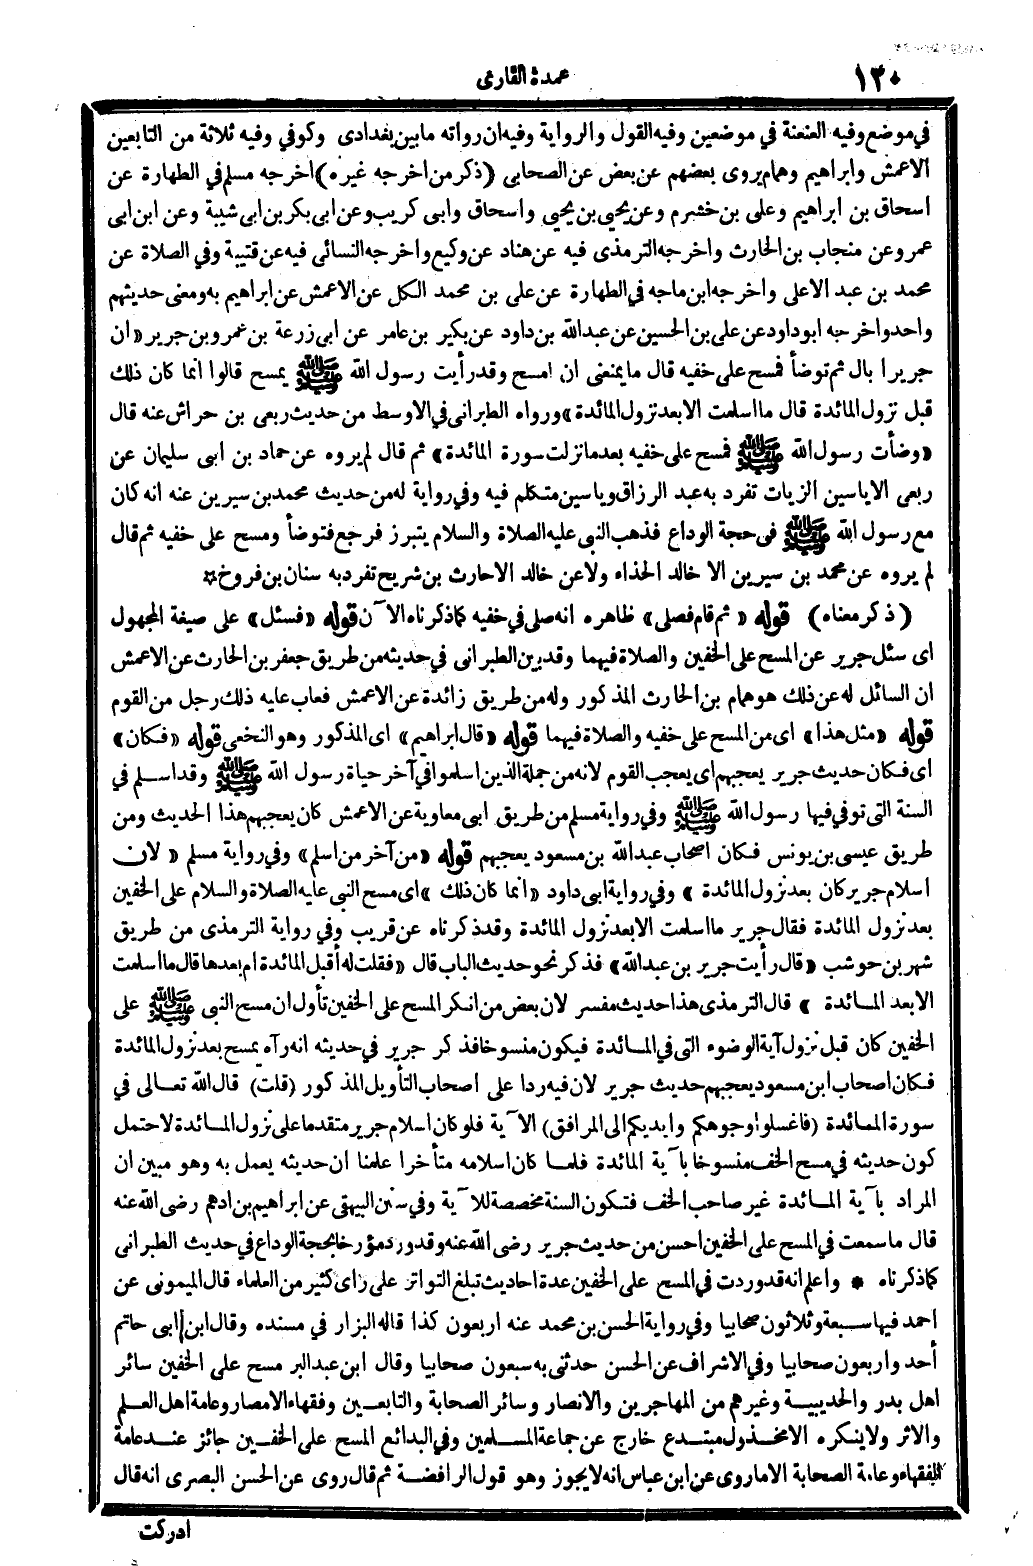 ١٢٠
عمدة القارى
في موضع وفيه العنعنة في موضعين وفيه القول والرواية وفيه ان رواته ما بين بغدادى وكوفي وفيه ثلاثة من التابعين
الاعمش وابراهيم وهمام يروى بعضهم عن بعض عن الصحابى (ذكر من اخرجه غيره) اخرجه مسلم في الطهارة عن
اسحاق بن ابراهيم وعلى بن خشرم وعن يحيى بن يحيى واسحاق وابى كريب وعن ابى بكر بن ابى شيبة وعن ابن ابى
عمر وعن منجاب بن الحارث واخرجه الترمذى فيه عن هناد عن وكيع واخرجه النسائى فيه عن قتيبة وفي الصلاة عن
محمد بن عبد الاعلى واخرجه ابن ماجه في الطهارة عن على بن محمد الكل عن الاعمش عن ابراهيم به ومعنى حديثهم
واحد واخرجه ابو داود عن على بن الحسين عن عبد الله بن داود عن بكير بن عامر عن ابى زرعة بن عمرو بن جرير «ان
جريرا بال ثم توضأ فمسح على خفيه قال ما يمنعنى ان امسح وقد رأيت رسول الله ﷺ يمسح قالوا انما كان ذلك
قبل نزول المائدة قال ما اسلمت الا بعد نزول المائدة» ورواه الطبرانى في الاوسط من حديث ربعى بن حراش عنه قال
«وضأت رسول الله ﷺ فمسح على خفيه بعد ما نزلت سورة المائدة» ثم قال لم يروه عن حماد بن ابى سليمان عن
ربعى الا ياسين الزيات تفرد به عبد الرزاق وياسين متكلم فيه وفي رواية له من حديث محمد بن سيرين عنه انه كان
مع رسول الله ﷺ في حجة الوداع فذهب النبى عليه الصلاة والسلام يتبرز فرجع فتوضأ ومسح على خفيه ثم قال
لم يروه عن محمد بن سيرين الا خالد الحذاء ولا عن خالد الا حارث بن شريح تفرد به سنان بن فروخ ✡
(ذكر معناه) قوله «ثم قام فصلى» ظاهره انه صلى في خفيه كما ذكرناه الآن قوله «فسئل» على صيغة المجهول
اى سئل جرير عن المسح على الخفين والصلاة فيهما وقد بين الطبرانى في حديثه من طريق جعفر بن الحارث عن الاعمش
ان السائل له عن ذلك هو همام بن الحارث المذكور وله من طريق زائدة عن الاعمش فعاب عليه ذلك رجل من القوم
قوله «مثل هذا» اى من المسح على خفيه والصلاة فيهما قوله «قال ابراهيم» اى المذكور وهو النخعى قوله «فكان»
اى فكان حديث جرير يعجبهم اى يعجب القوم لانه من جملة الذين اسلموا في آخر حياة رسول الله ﷺ وقد اسلم في
السنة التى توفي فيها رسول الله ﷺ وفي رواية مسلم من طريق ابى معاوية عن الاعمش كان يعجبهم هذا الحديث ومن
طريق عيسى بن يونس فكان اصحاب عبد الله بن مسعود يعجبهم قوله «من آخر من اسلم» وفي رواية مسلم «لان
اسلام جرير كان بعد نزول المائدة» وفي رواية ابى داود «انما كان ذلك» اى مسح النبى عليه الصلاة والسلام على الخفين
بعد نزول المائدة فقال جرير ما اسلمت الا بعد نزول المائدة وقد ذكرناه عن قريب وفي رواية الترمذى من طريق
شهر بن حوشب «قال رأيت جرير بن عبد الله» فذكر نحو حديث الباب قال «فقلت له أقبل المائدة ام بعدها قال ما اسلمت
الا بعد المائدة» قال الترمذى هذا حديث مفسر لان بعض من انكر المسح على الخفين تأول ان مسح النبى ﷺ على
الخفين كان قبل نزول آية الوضوء التى في المائدة فيكون منسوخا فذكر جرير في حديثه انه رآه يمسح بعد نزول المائدة
فكان اصحاب ابن مسعود يعجبهم حديث جرير لان فيه ردا على اصحاب التأويل المذكور (قلت) قال الله تعالى في
سورة المائدة (فاغسلوا وجوهكم وايديكم الى المرافق) الآية فلو كان اسلام جرير متقدما على نزول المائدة لاحتمل
كون حديثه في مسح الخف منسوخا بآية المائدة فلما كان اسلامه متأخرا علمنا ان حديثه يعمل به وهو مبين ان
المراد بآية المائدة غير صاحب الخف فتكون السنة مخصصة للآية وفي سنن البيهقى عن ابراهيم بن ادهم رضى الله عنه
قال ما سمعت في المسح على الخفين احسن من حديث جرير رضى الله عنه وقد ورد مؤرخا بحجة الوداع في حديث الطبرانى
كما ذكرناه * واعلم انه قد وردت في المسح على الخفين عدة احاديث تبلغ التواتر على رأى كثير من العلماء قال الميمونى عن
احمد فيها سبعة وثلاثون صحابيا وفي رواية الحسن بن محمد عنه اربعون كذا قاله البزار في مسنده وقال ابن ابى حاتم
أحد واربعون صحابيا وفي الاشراف عن الحسن حدثنى به سبعون صحابيا وقال ابن عبد البر مسح على الخفين سائر
اهل بدر والحديبية وغيرهم من المهاجرين والانصار وسائر الصحابة والتابعين وفقهاء الامصار وعامة اهل العلم
والاثر ولا ينكره الا مخذول مبتدع خارج عن جماعة المسلمين وفي البدائع المسح على الخفين جائز عند عامة
الفقهاء وعامة الصحابة الا ما روى عن ابن عباس انه لا يجوز وهو قول الرافضة ثم قال روى عن الحسن البصرى انه قال
ادركت